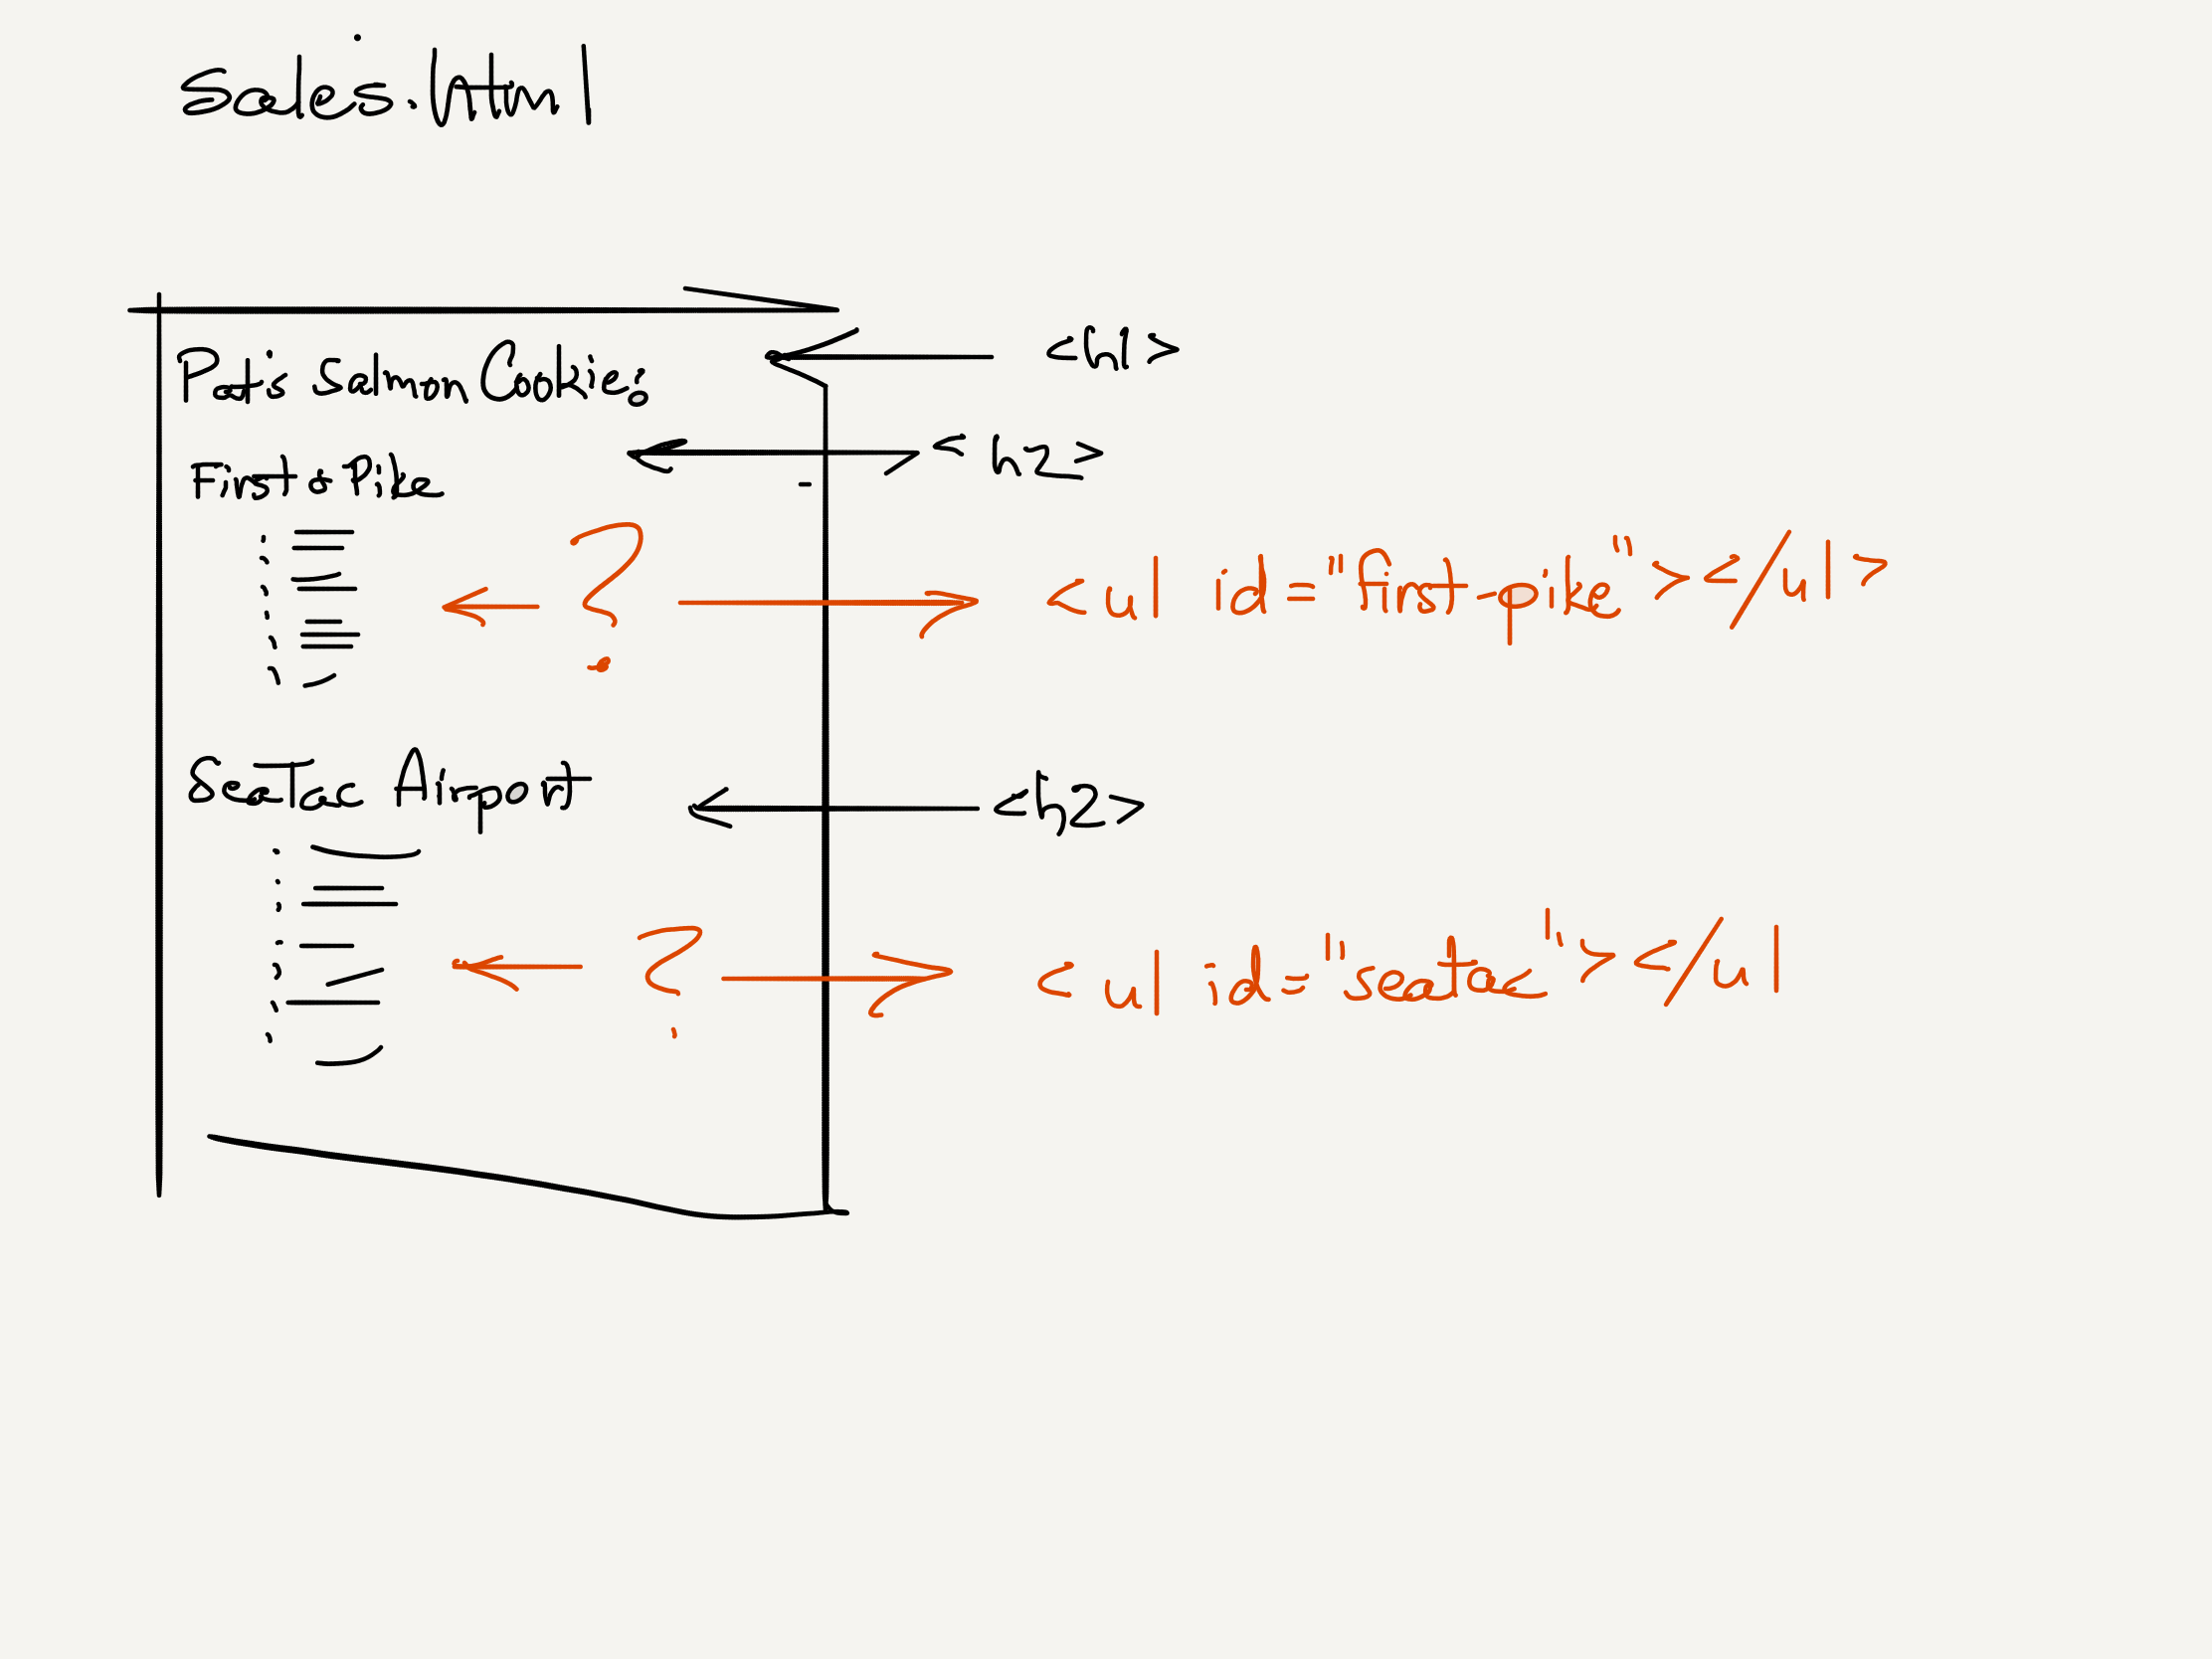 sales.html
Pat's Salmon Cookies
<h1>
First & Pike
<h2>
?
<ul id="first-pike"></ul>
SeaTac Airport
<h2>
?
<ul id="seatac"></ul